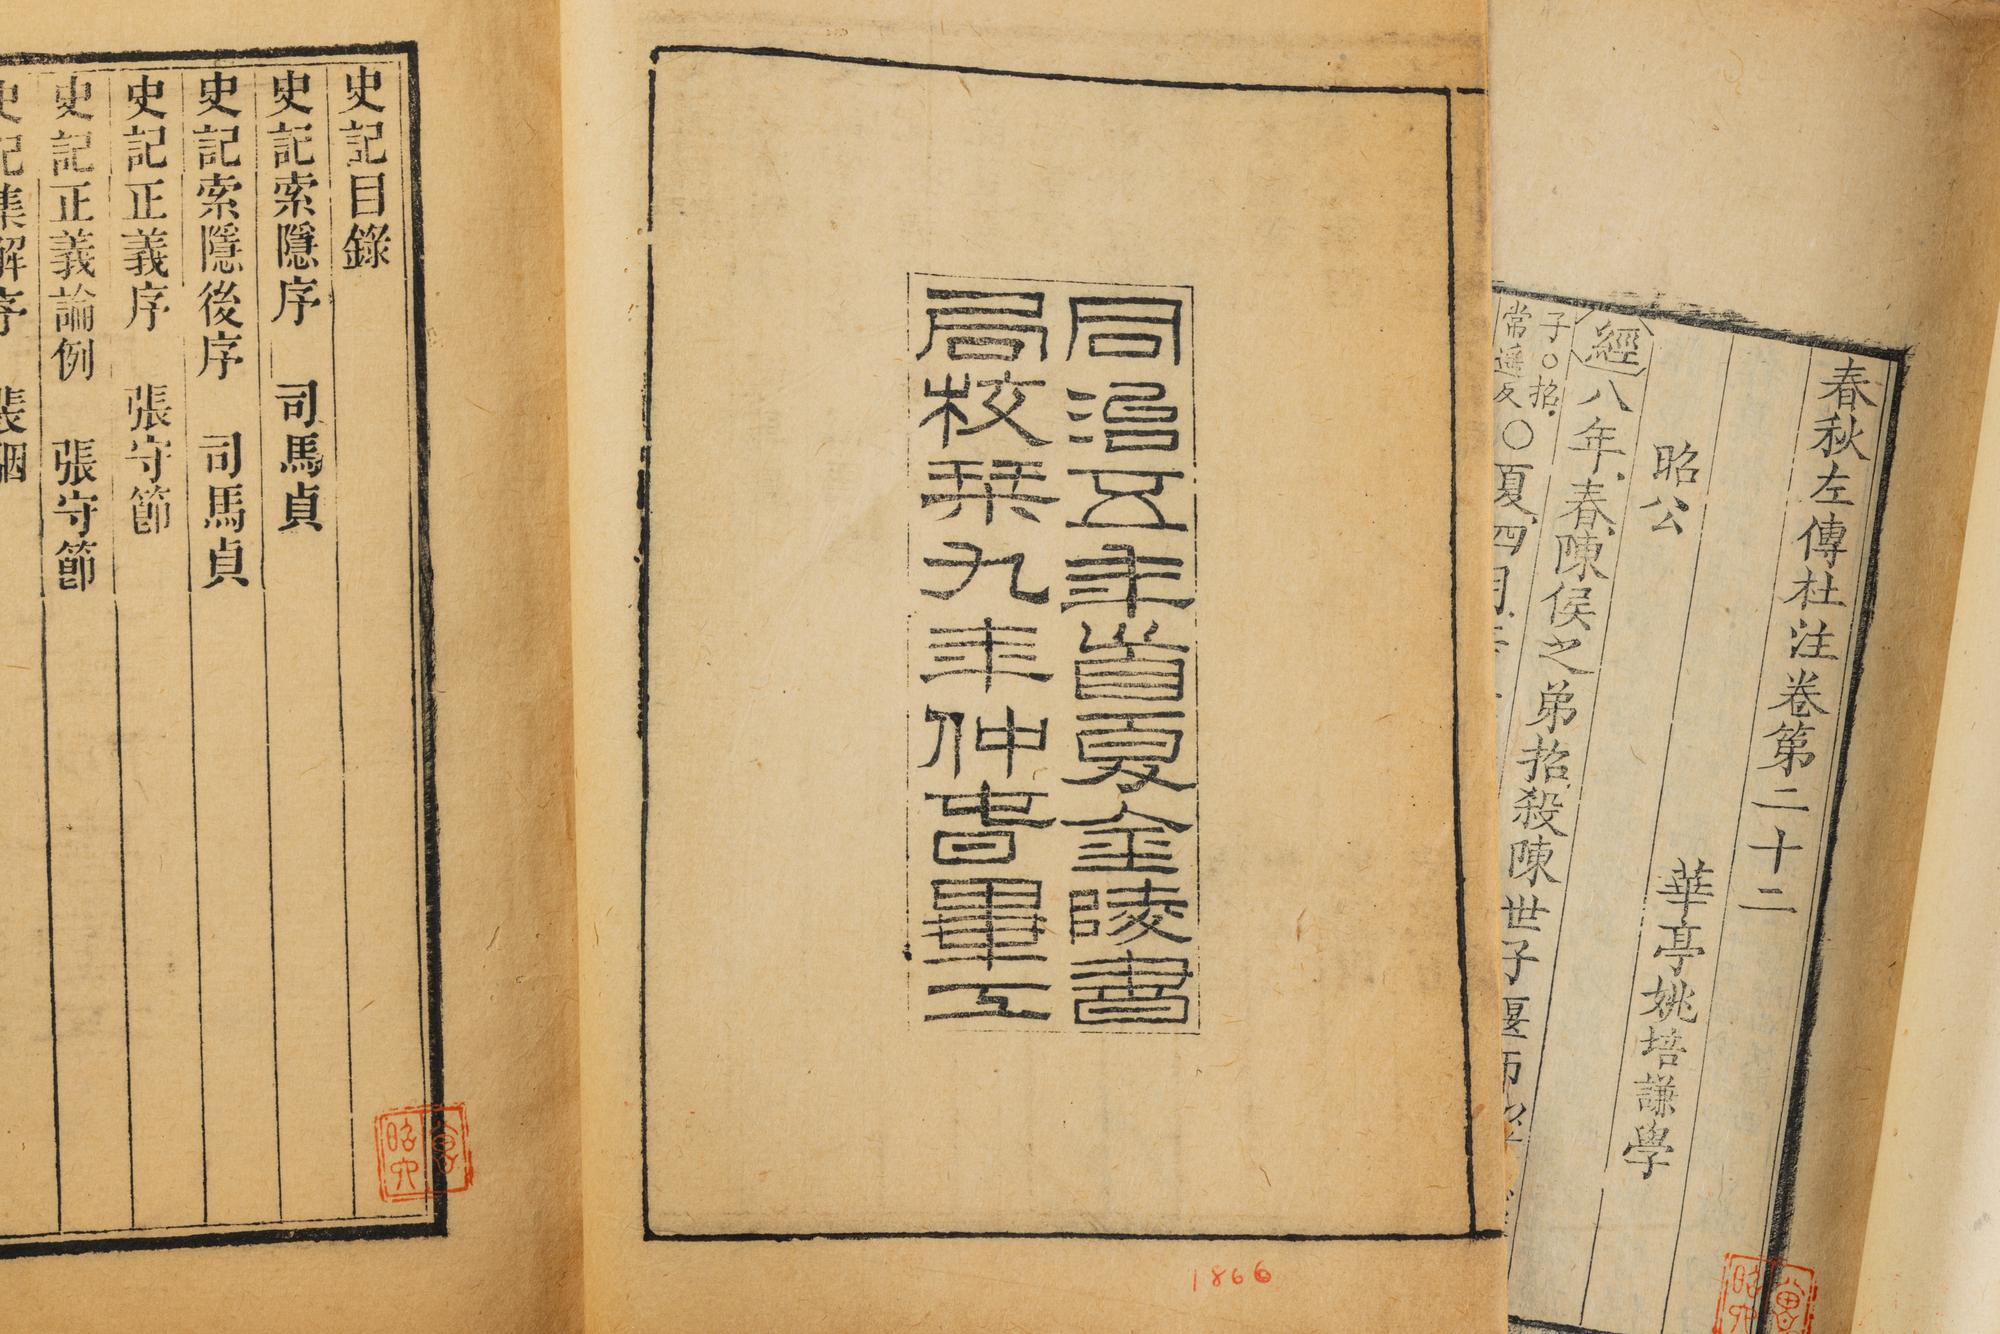 春秋左傳杜注卷第二十二
華亭姚培謙學
昭公
經八年春陳侯之弟招殺陳世子偃師
子○招
常遥反
○夏四月
同治五年首夏金陵書
局校栞九年仲春畢工
1866
史記目錄
史記索隱序 司馬貞
史記索隱後序 司馬貞
史記正義序 張守節
史記正義論例 張守節
史記集解序 裴駰